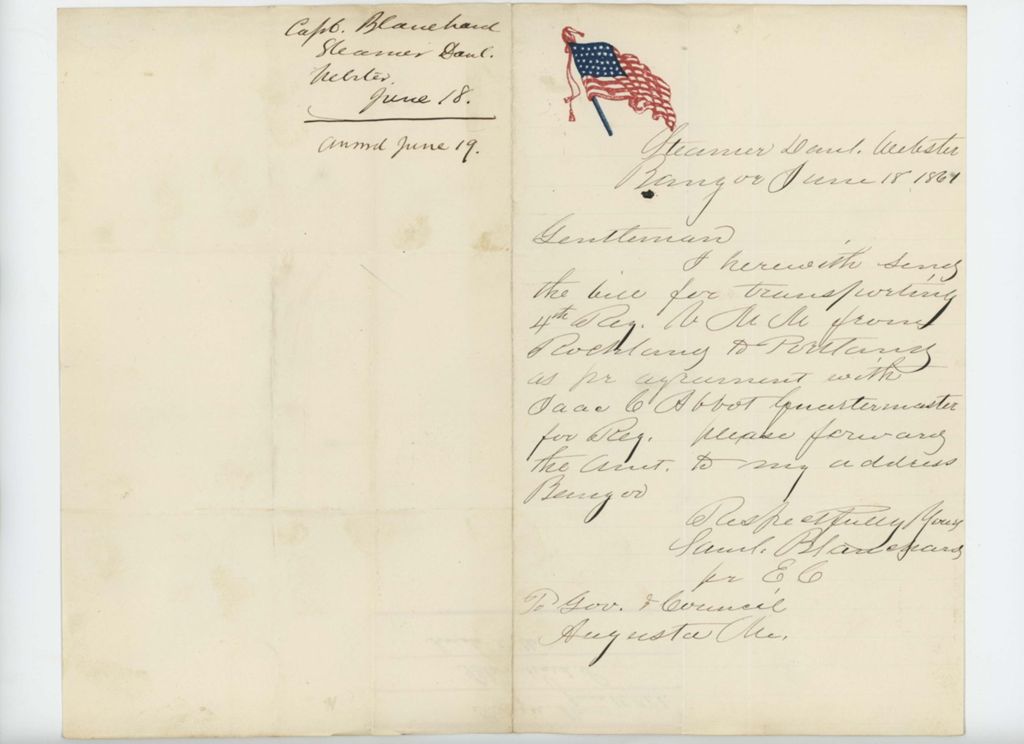 Capt. Blanchard
Steamer Danl.
Webster.
June 18.
answd June 19.
Steamer Danl. Webster
Bangor June 18 1861
Gentleman
I herewith send
the bill for transporting
4th Reg. V M M from
Rockland to Portland
as pr agrument with
Isaac C Abbot Quartermaster
for Reg. please forward
the Amt. to my address
Bangor
Respectfully Yours
Saml. Blanchard
pr E C
To Gov. & Council
Augusta Me.